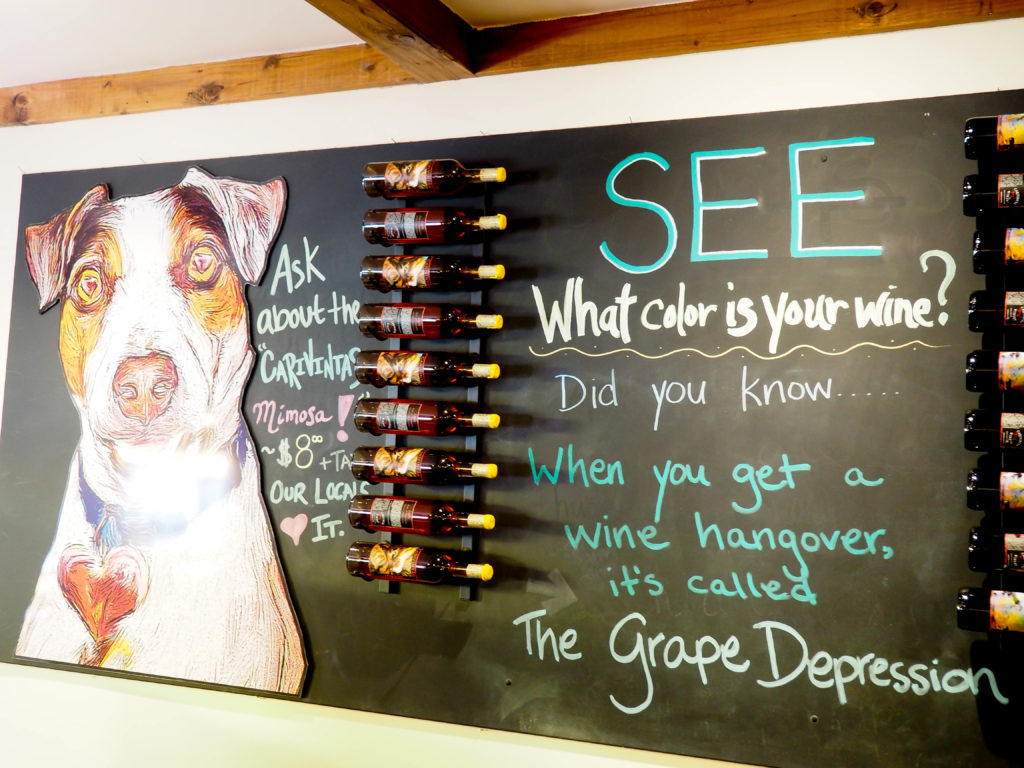 Ask
about the
"CARIVINTAS
Mimosa!
~$8⁰⁰ + TA
OUR LOCALS
♥ IT.
SEE
What color is your wine?
Did you know......
When you get a
wine hangover,
it's called
The Grape Depression